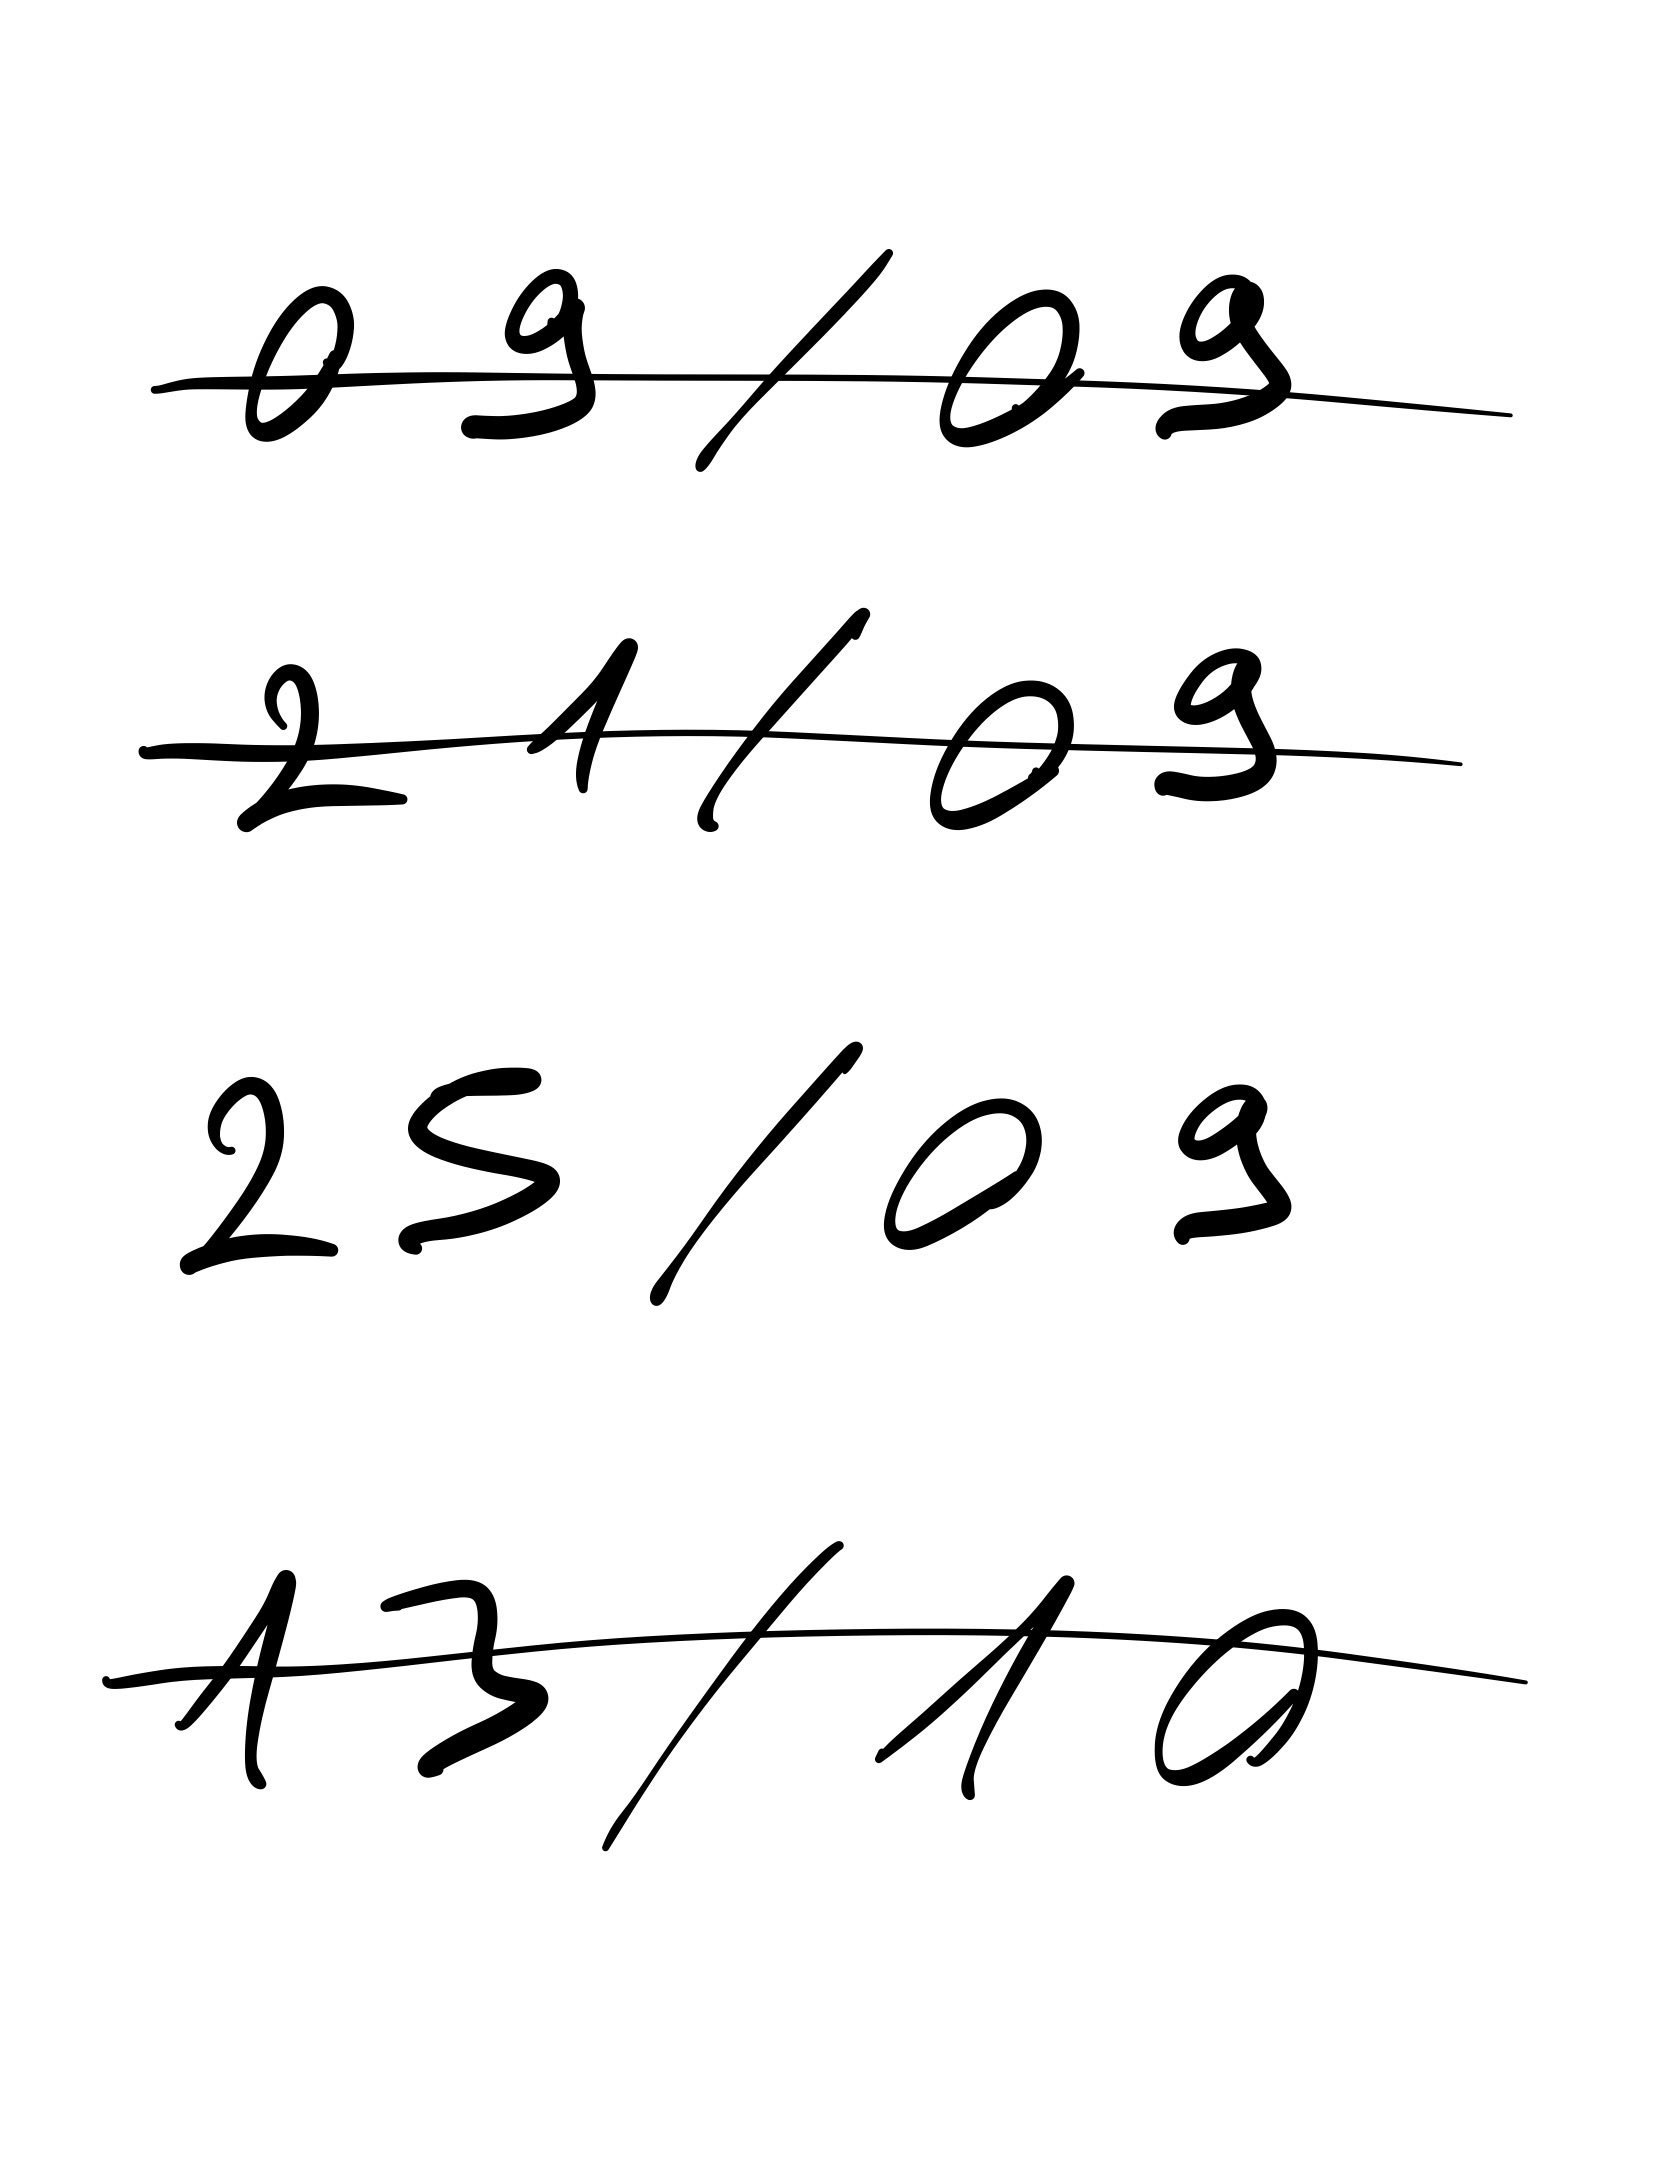 09/09
21/09
25/09
13/10